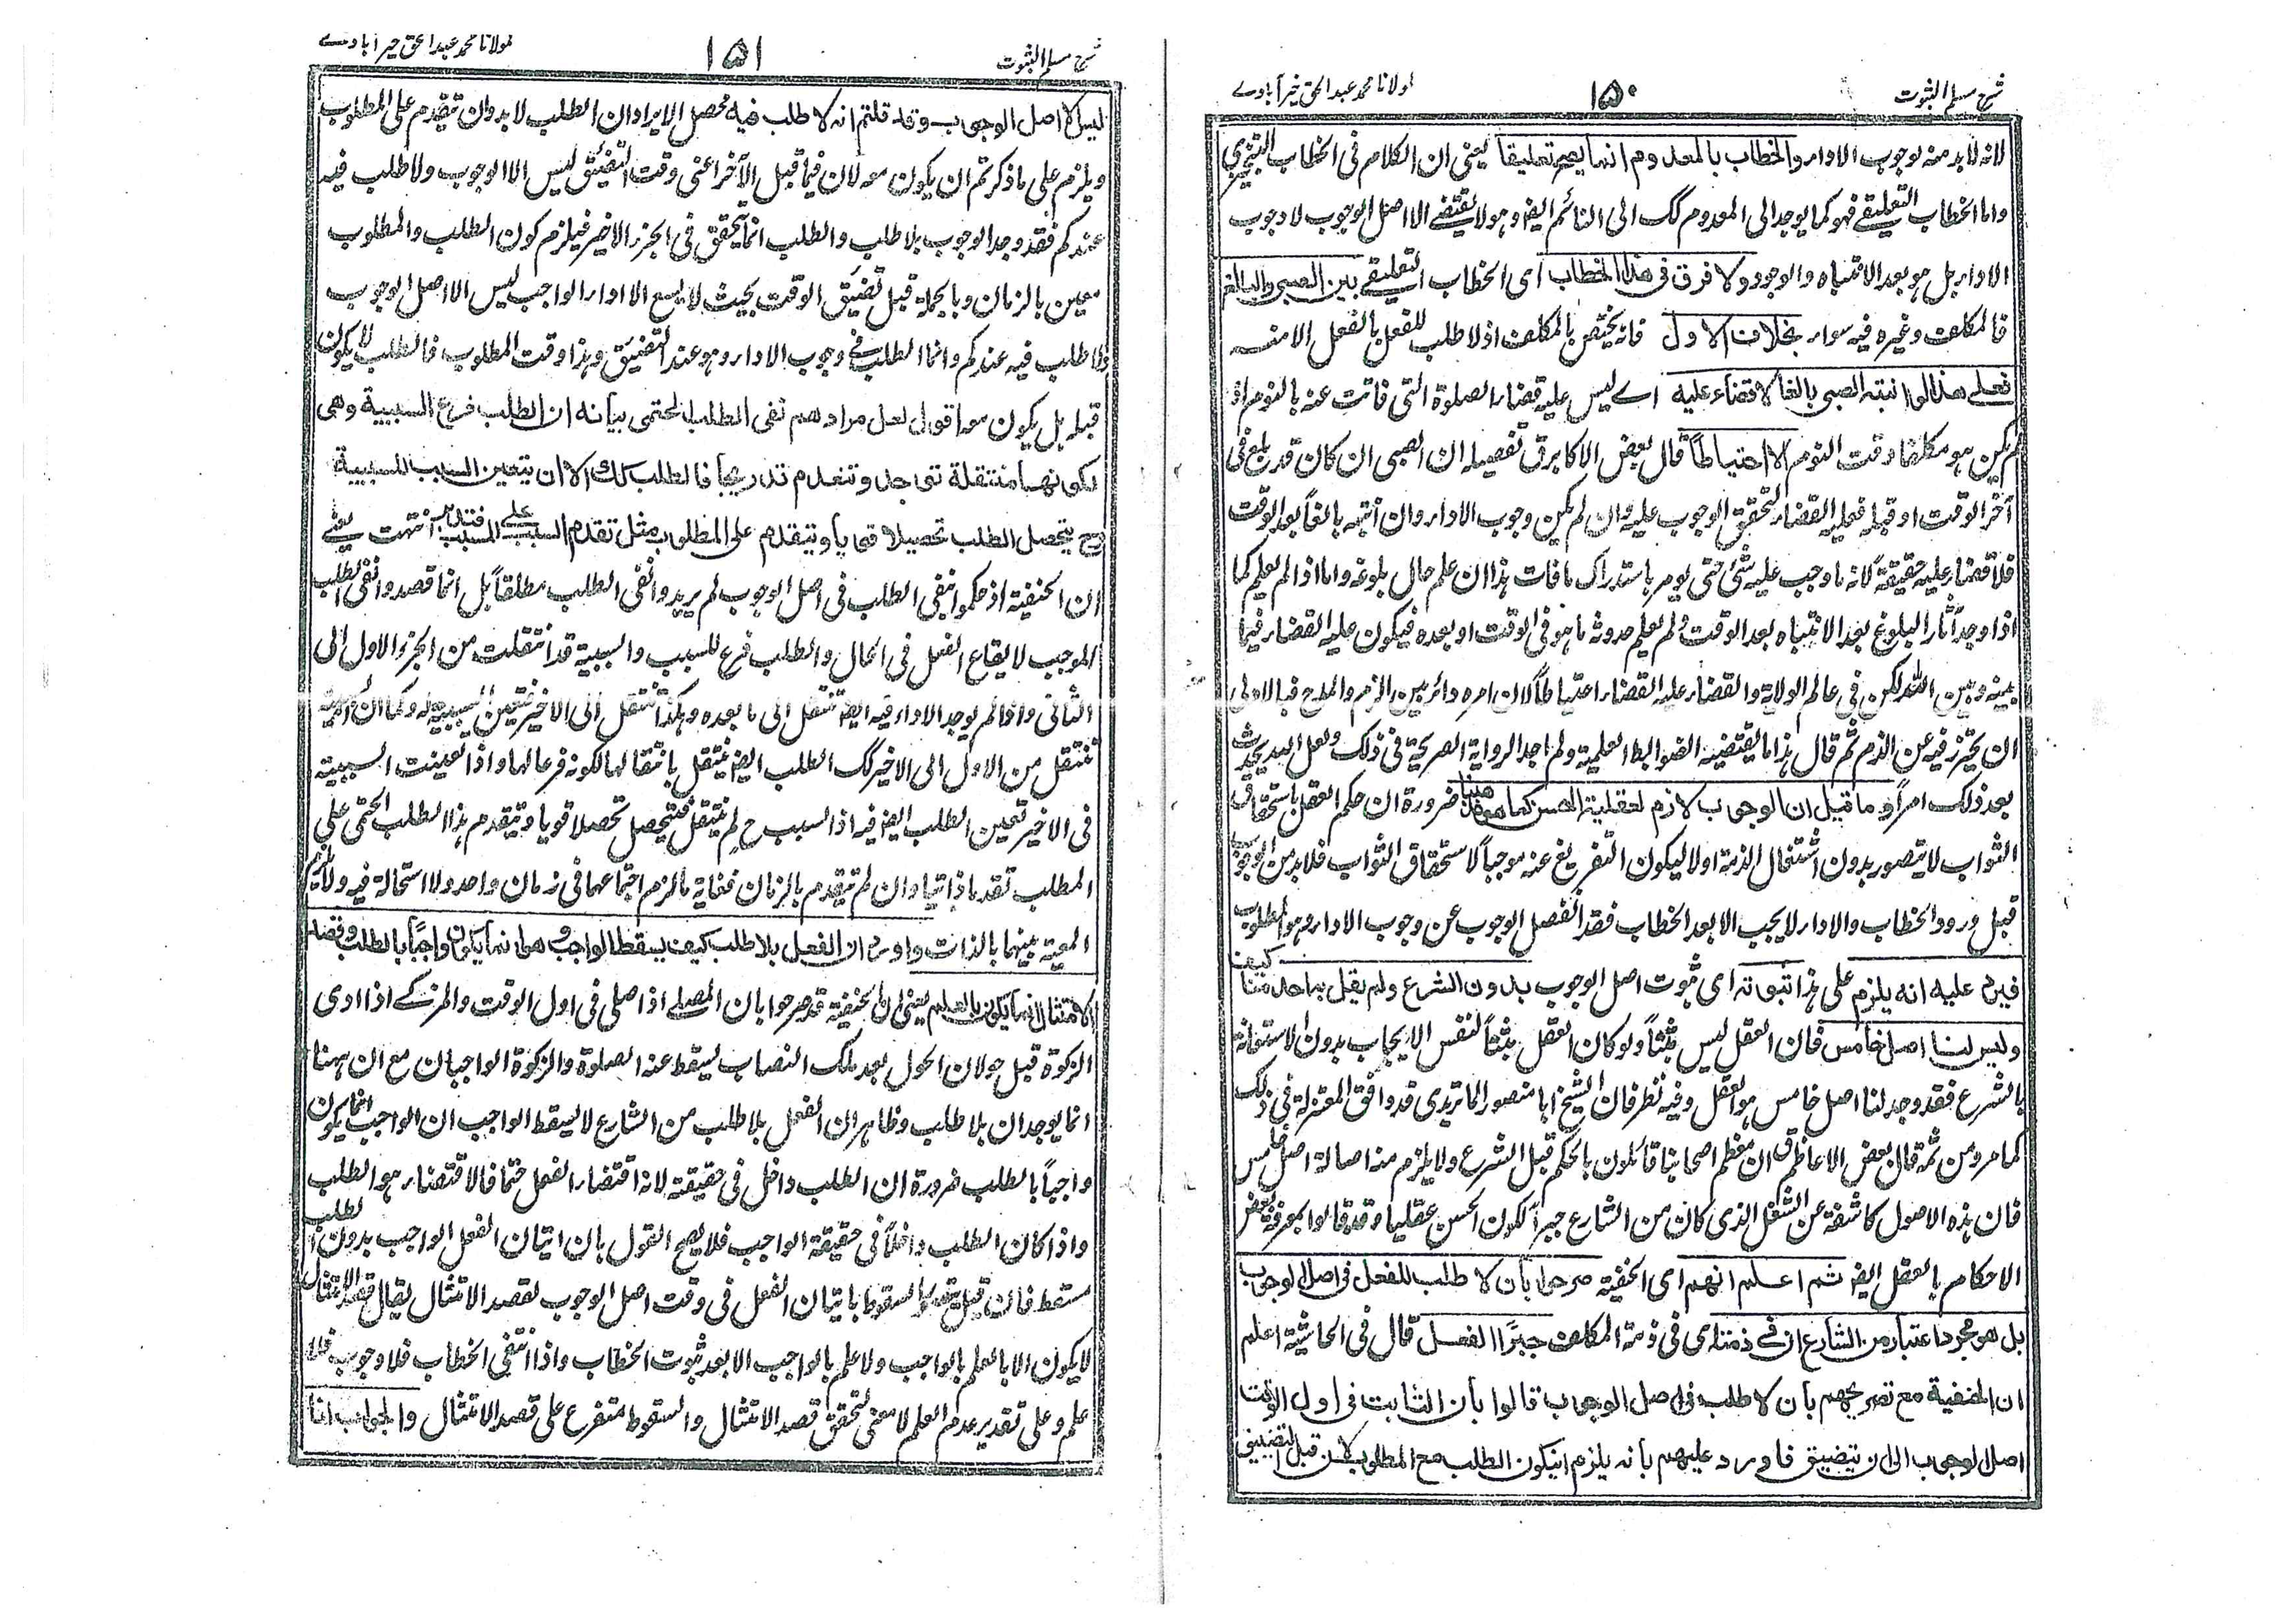 شرح مسلم الثبوت
١٥٠
مولانا محمد عبد الحق خیرآبادے
لانه لا بد منه لوجوب الاداء والخطاب بالمعدوم انما يصح تعليقا يعنى ان الكلام فى الخطاب التنجيزى
واما الخطاب التعليقے فهو كما يوجد الى المعدوم كك الى النائم ايضا وهو لا يقتضے الا اصل الوجوب لا وجوب
الاداء بل هو بعد الانتباه والوجود ولا فرق فى هذا الخطاب اى الخطاب التعليقے بين الصبى والبالغ
فالمكلف وغيره فيه سواء بخلاف الاول فانه يختص بالمكلف اذ لا طلب للفعل بالفعل الا منه
فعلے هذا لو انتبه الصبى بالغا لا قضاء عليه اے ليس عليه قضاء الصلوة التى فاتت عنه بالنوم اذ
لم يكن هو مكلفا وقت النوم الا احتياطاً قال بعض الاكابر ق تفصيله ان الصبى ان كان قد بلغ فى
آخر الوقت او قبله فعليه القضاء لتحقق الوجوب عليه وان لم يكن وجوب الاداء وان انتبه بالغاً بعد الوقت
فلا قضاء عليه حقيقة لانه ما وجب عليه شئ حتى يومر باستدراك ما فات هذا ان علم حال بلوغه واما اذا لم يعلم كما
اذا وجد آثار البلوغ بعد الانتباه بعد الوقت ولم يعلم حدوثه ما هو فى الوقت او بعده فيكون عليه القضاء فيما
بينه وبين الله لكن فى عالم الولاية والقضاء عليه القضاء احتياطاً لان امره دائر بين الزم والمدح فبالاولى
ان يحترز فيه عن الذم ثم قال هذا ما يقتضيه الضوابط العلمية ولم اجد الرواية الصريحة فى ذلك ولعل الله يحدث
بعد ذلك امراً وما قيل ان الوجوب لازم لعقلية الحسن كما هو مذهبنا ضرورة ان حكم العقل باستحقاق
الثواب لا يتصور بدون اشتغال الذمة اولا ليكون التفريغ عنه موجباً لاستحقاق الثواب فلا بد من الوجوب
قبل ورود الخطاب والاداء لا يجب الا بعد الخطاب فقد انفصل الوجوب عن وجوب الاداء وهو المطلوب
فيرد عليه انه يلزم على هذا ثبوته اى ثبوت اصل الوجوب بدون الشرع ولم يقل به احد منا كيف
وليس لنا اصل خامس فان العقل ليس مثبتاً ولو كان العقل مثبتاً لنفس الايجاب بدون الاستعانة
بالشرع فقد وجد لنا اصل خامس هو العقل وفيه نظر فان الشيخ ابا منصور الماتريدى قد وافق المعتزلة فى ذلك
كما مر ومن ثمة قال بعض الاعاظم ق ان معظم اصحابنا قائلون بالحكم قبل الشرع ولا يلزم منه اصالة اصل خامس
فان هذه الاصول كاشفة عن الشغل الذى كان من الشارع جبراً لكون الحسن عقليا وقد قالوا بمعرفة بعض
الاحكام بالعقل ايضا ثم اعلم انهم اى الحنفية صرحوا بان لا طلب للفعل فى اصل الوجوب
بل هو مجرد اعتبار من الشارع ان فے ذمته اى فى ذمة المكلف جبرًا الفعل قال فى الحاشية اعلم
ان الحنفية مع تصريحهم بان لا طلب فى اصل الوجوب قالوا بان الثابت فى اول الوقت
اصل الوجوب الى ان يتضيق فاورد عليهم بانه يلزم ان يكون الطلب مع المطلوب لان قبل التضييق
شرح مسلم الثبوت
١٥١
مولانا محمد عبد الحق خیرآبادے
ليس الا اصل الوجوب وقد قلتم انه لا طلب فيه محصل الايراد ان الطلب لا بد وان يتقدم على المطلوب
ويلزم على ما ذكرتم ان يكون معه لان فيما قبل الآخر اعنى وقت التضيق ليس الا الوجوب ولا طلب فيه
عندكم فقد وجد الوجوب بلا طلب والطلب انما يتحقق فى الجزء الاخير فيلزم كون الطلب والمطلوب
معين بالزمان وبالجملة قبل تضيق الوقت بحيث لا يسع الا اداء الواجب ليس الا اصل الوجوب
ولا طلب فيه عندكم وانما الطلب فے وجوب الاداء وهو عند التضيق وهذا وقت المطلوب فالطلب لا يكون
قبله بل يكون معه اقول لعل مرادهم نفى الطلب الحتمى بيانه ان الطلب فرع السببية وهى
لكونها منتقلة توجد وتنعدم تدريجا فالطلب كذلك الا ان يتعين السبب للسببية
فح يتحصل الطلب تحصيلا قويا ويتقدم على المطلوب مثل تقدم السبب علے المسبب فتدبر انتهت يعنے
ان الحنفية اذ حكموا بنفى الطلب فى اصل الوجوب لم يريدوا نفى الطلب مطلقاً بل انما قصدوا نفى الطلب
الموجب لايقاع الفعل فى الحال والطلب فرع للسبب والسببية قد انتقلت من الجزء الاول الى
الثانى واذا لم يوجد الاداء فيه ايضا تنتقل الى ما بعده وهكذا تنتقل الى الاخير فتتعين السببية له وكما ان السببية
تنتقل من الاول الى الاخير كك الطلب ايضا ينتقل بانتقالها لكونه فرعا لها واذا تعينت السببية
فى الاخير تعين الطلب ايضا فيه اذ السبب ح لم ينتقل فيتحصل تحصلا قويا ويتقدم هذا الطلب الحتمى على
المطلب تقدما ذاتيا وان لم يتقدم بالزمان فغاية ما لزم اجتماعهما فى زمان واحد ولا استحالة فيه ولا يلزم
المعية بينهما بالذات واورد ان الفعل بلا طلب كيف يسقط الواجب وهو انما يكون واجباً بالطلب وقصد
الامتثال انما يكون بالعلم يعنى ان الحنفية قد صرحوا بان المصلے اذا صلى فى اول الوقت والمزكے اذا ادى
الزكوة قبل حولان الحول بعد ملك النصاب يسقط عنه الصلوة والزكوة الواجبان مع ان ههنا
انما يوجدان بلا طلب وظاهر ان الفعل بلا طلب من الشارع لا يسقط الواجب ان الواجب انما يكون
واجباً بالطلب ضرورة ان الطلب داخل فى حقيقته لانه اقتضاء الفعل حتما فالاقتضاء هو الطلب
واذا كان الطلب داخلاً فى حقيقة الواجب فلا يصح القول بان اتيان الفعل الواجب بدون الطلب
مسقط فان قيل السقوط باتيان الفعل فى وقت اصل الوجوب لقصد الامتثال يقال قصد الامتثال
لا يكون الا بالعلم بالواجب ولا علم بالواجب الا بعد ثبوت الخطاب واذا انتفى الخطاب فلا وجوب فلا
علم وعلى تقدير عدم العلم لا معنى لتحقق قصد الامتثال والسقوط متفرع على قصد الامتثال والجواب انا